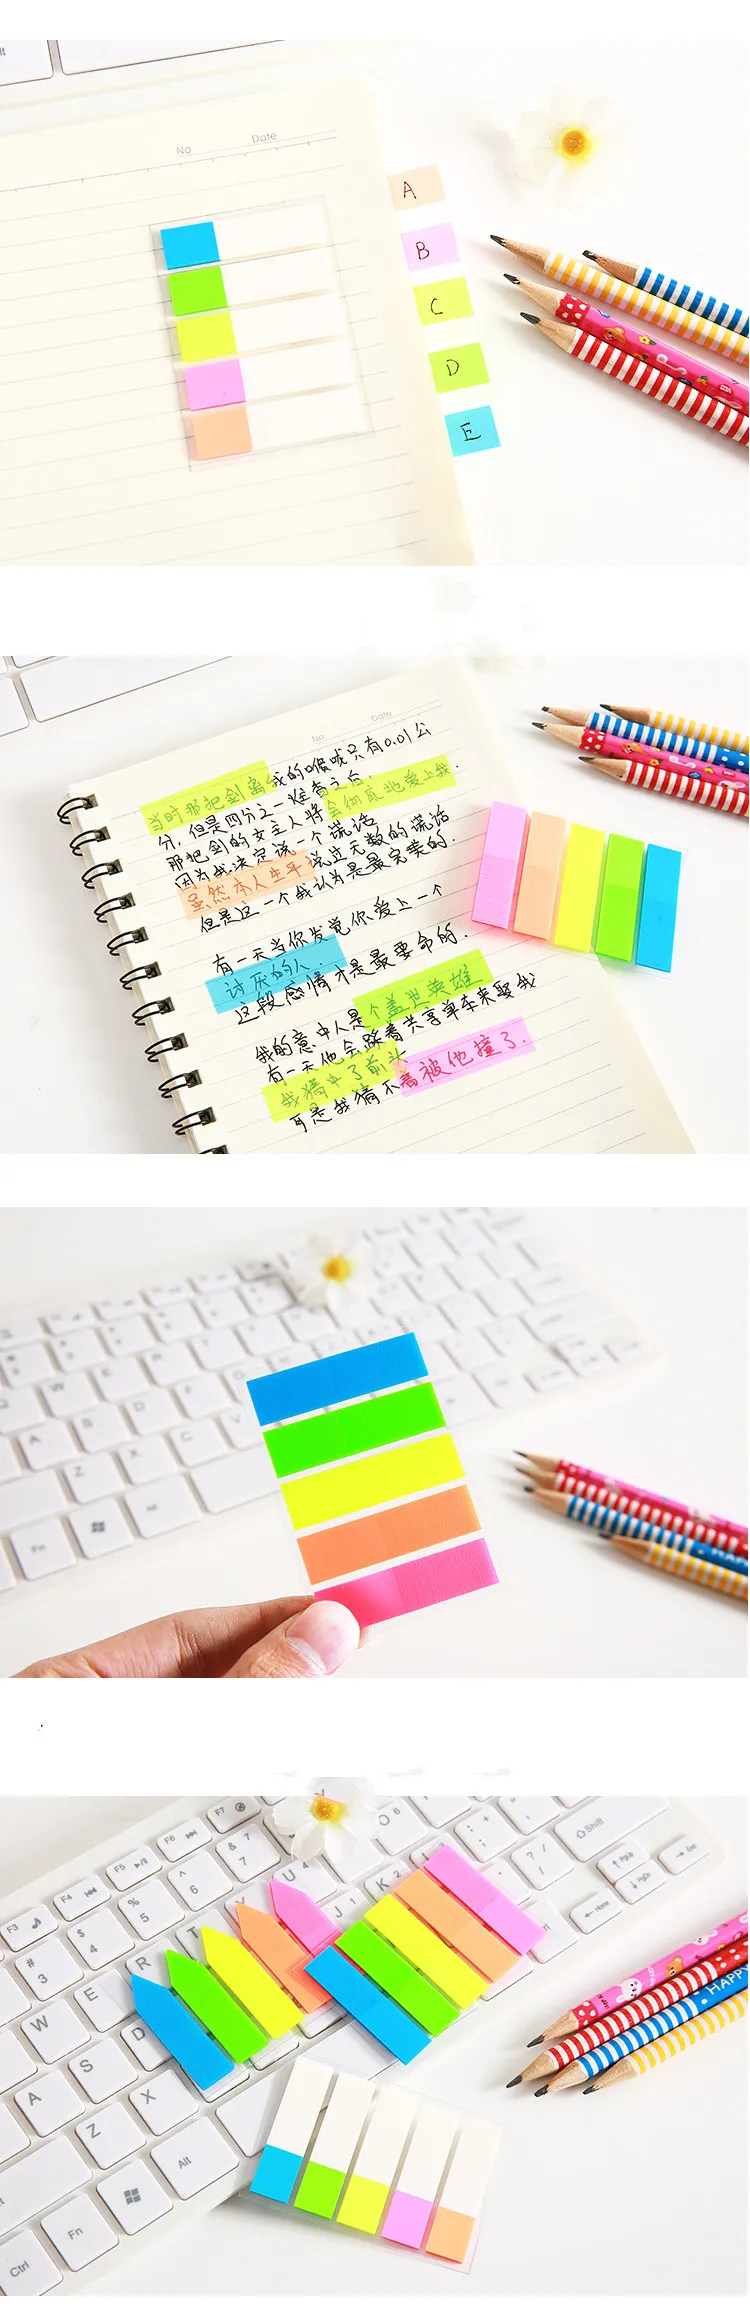 No Date
A
B
C
D
E
No Date
当时那把剑离我的喉咙只有0.01公
分,但是四分之一炷香之后,
那把剑的女主人将会彻底地爱上我.
因为我决定说一个谎话
虽然本人生平说过无数的谎话
但是这一个我认为是最完美的.
有一天当你发觉你爱上一个
讨厌的人.
这段感情才是最要命的.
我的意中人是个盖世英雄
有一天他会踩着共享单车来娶我
我猜中了前头
可是我猜不着被他撞了.
Fn
Alt
HAPP
F7
F6
F5
F4
F3
&
7
^
6
%
5
$
4
#
3
U
Y
T
R
E
W
J
K
D
S
A
X
Z
Alt
Fn
Ctrl
Shift
PgUp
PgDn
Home
End
HAPPY